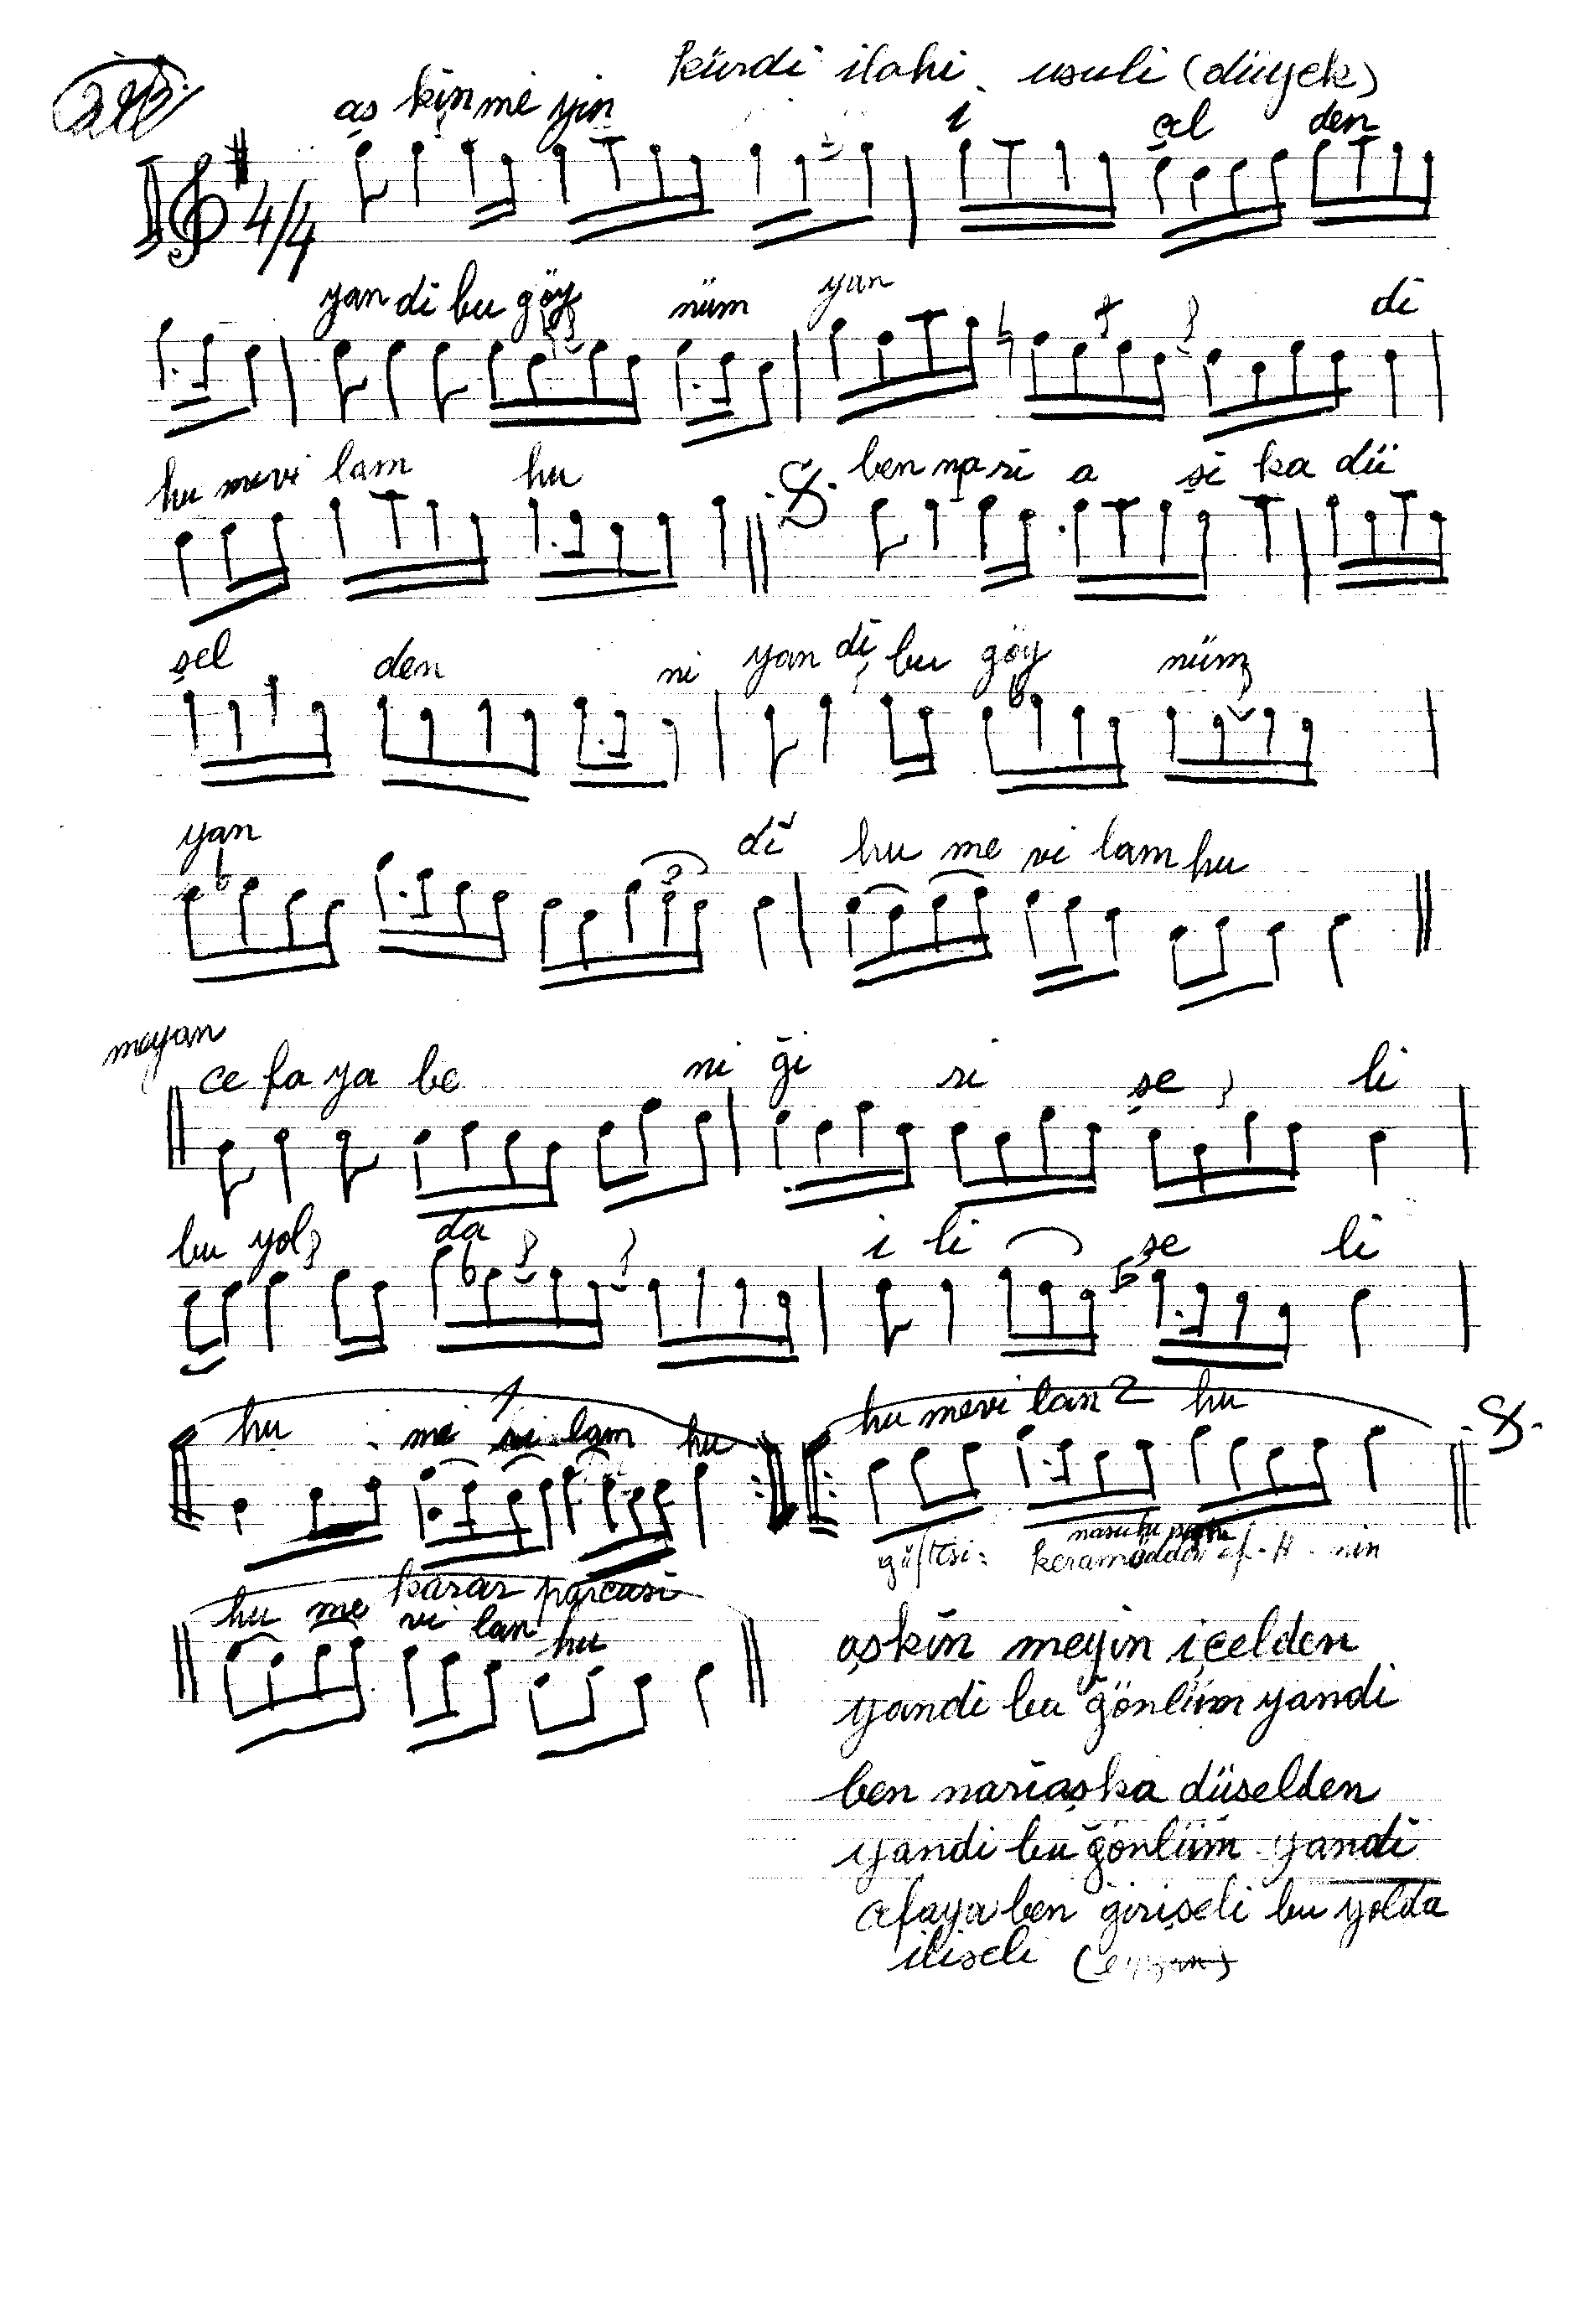 kürdi ilahi usuli (düyek)
aş kin me yin i çel den
4/4
yan di bu göy nüm yan di
hu mevi lam hu ben na ri a şi ka dü
şel den ni yan di bu göy nüm
yan di hu me vi lam hu
3
meyan
ce fa ya be ni ği ri şe li
bu yol da i li şe li
1 2
hu me vi lam hu hu mevi lan hu
güftesi: keramöddin ef-H-nin
karar parcasi
hu me vi lan hu
aşkin meyin içelden
yandi bu gönlüm yandi
ben nariaşka düselden
yandi bu ğönlüm yandi
cefaya ben girişeli bu yolda
ilişeli